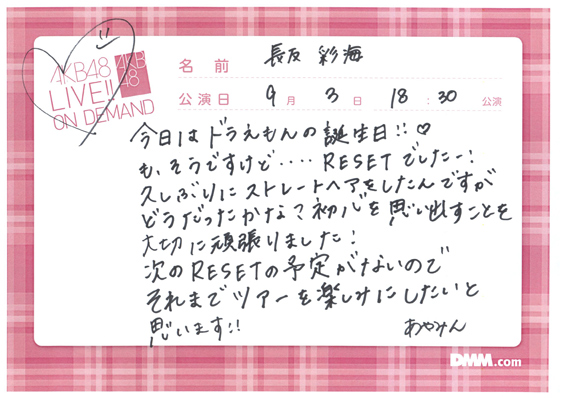 AKB48
LIVE!!
ON DEMAND
AKB
48
名前 長友 彩海
公演日 9月 3日 18:30 公演
今日はドラえもんの誕生日!!♡
も、そうですけど‥‥RESETでしたー!
久しぶりにストレートヘアをしたんですが
どうだったかな?初心を思い出すことを
大切に頑張りました!
次のRESETの予定がないので
それまでツアーを楽しみにしたいと
思います!!
あやみん
DMM.com